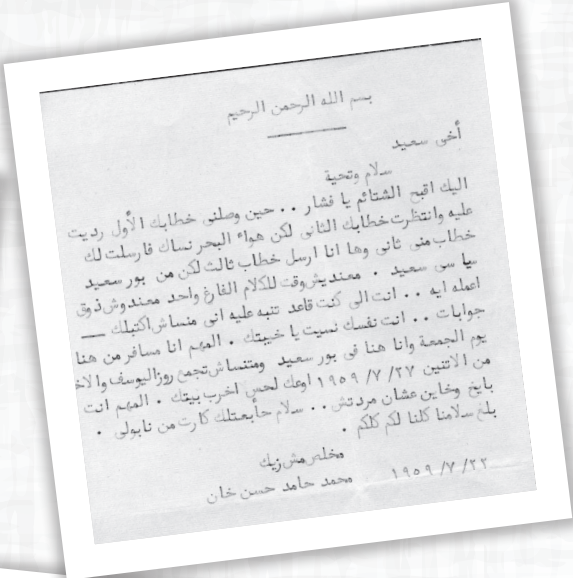 بسم الله الرحمن الرحيم
أخى سعيد
سلام وتحية
اليك اقبح الشتائم يا فشار .. حين وصلنى خطابك الأول رديت
عليه وانتظرت خطابك الثانى لكن هواء البحر نساك فارسلت لك
خطاب منى ثانى وها انا ارسل خطاب ثالث لكن من بور سعيد
يا سى سعيد . معنديش وقت للكلام الفارغ واحد معندوش ذوق
اعمله ايه .. انت الى كنت قاعد تنبه عليه انى منساش اكتبلك —
جوابات .. انت نفسك نسيت يا خيبتك . المهم انا مسافر من هنا
يوم الجمعة وانا هنا فى بور سعيد ومتنساش تجمع روزاليوسف والاخ
من الاتنين ٢٧/ ٧/ ١٩٥٩ اوعك لحس اخرب بيتك . المهم انت
بايخ وخاين عشان مردتش .. سلام حأبعتلك كارت من نابولى .
بلغ سلامنا كلنا لكم كلكم .
مخلص مش زيك
محمد حامد حسن خان
٢٢/ ٧/ ١٩٥٩